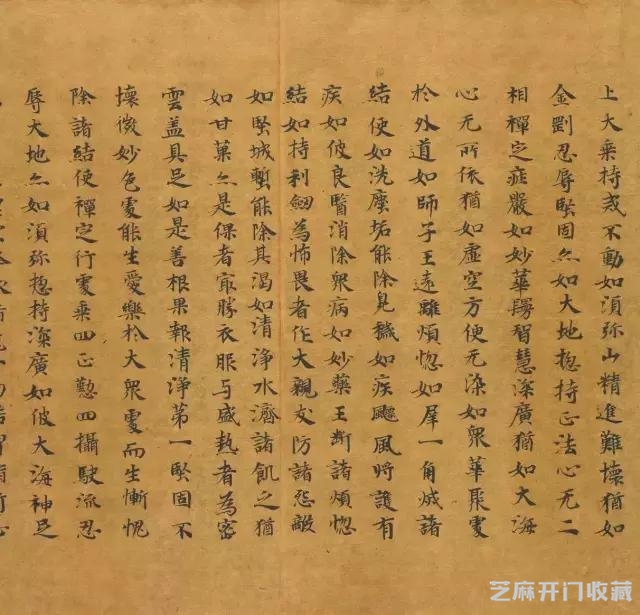 上大乘持戒不動如須弥山精進難壞猶如
金剛忍辱堅固亦如大地揔持正法心无二
相禪定莊嚴如妙華鬘智慧深廣猶如大海
心无所依猶如虛空方便无染如衆華聚處
於外道如師子王遠離煩惚如犀一角滅諸
結使如洗塵垢能除臭穢如疾飄風將護有
疾如彼良醫消除衆病如妙藥王斷諸煩惚
結如持利劒為怖畏者作大親友防諸怨敵
如堅城塹能除其渴如清淨水濟諸飢乏猶
如甘菓亦是倮者㝡勝衣服与盛熱者為密
雲盖具足如是善根果報清淨第一堅固不
壞微妙色處能生愛樂於大衆處而生慚愧
除諸結使禪定行處乘四正懃四攝駛流忍
辱大地亦如須弥揔持深廣如彼大海神足
芝麻开门收藏